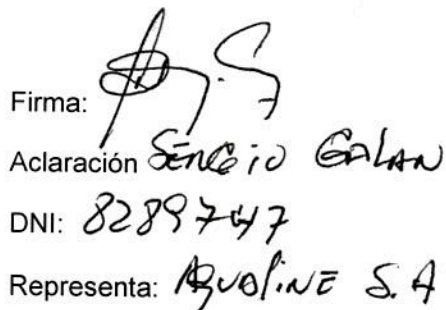 Firma:
Aclaración SERGIO GALAN
DNI: 8289747
Representa: AQUALINE S.A